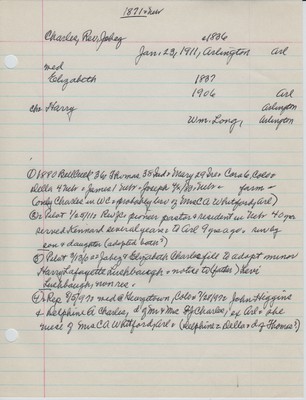 1871 + Neb
Charles, Rev. Jabez b 1836
Jan. 23, 1911, Arlington Arl
med
Elizabeth 1837
1906 Arl
chr Harry Arlington
Wm. Long, Arlington
① 1880 Bell Creek 36 Thomas 38 Ind + Mary 29 Ind Cora 6, Colo +
Della 4 Neb + James 1 Neb + Joseph Neb + farm -
(only Charles in WC + probably bro of Mrs CA Whitford, Arl)
② Pilot 1/26/11 Rev JC pioneer pastor + resident in Neb 40 yrs
served Kennard several years to Arl 9 yrs ago + surv by
son + daughter (adopted both?)
③ Pilot Jabez + Elizabeth Charles file to adopt minor
Harry Lafayette Lushbaugh + notice to (father) Levi
Lushbaugh, non res.
④ Rep med @ Georgetown, Colo + John Higgins
+ Delphine A Charles, d of Mr + Mrs Charles, ex Arl + she
niece of Mrs CA Whitford, Arl + (Delphine = Della + d of Thomas?)